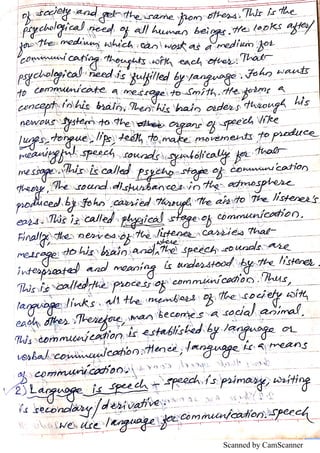 of society and get the same from others. This is the
psychological need of all human beings. He looks after/
for the medium which can work as a medium for
communicating thoughts with each other. That
psychological need is fulfilled by language. John wants
to communicate a message to Smith. He forms a
concept in his brain. Then his brain orders through his
nervous system to the other organs of speech like
lungs, tongue, lips, teeth to make movements to produce
meaningful speech sounds symbolically for that
message. This is called psycho stage of communication
theory. The sound disturbances in the atmosphere
produced by John carried through the air to the listener's
ears. This is called physical stage of communication.
Finally the nerves of the listener carries that
message to his brain and where the speech sounds are
interpreted and meaning is understood by the listener.
This is called the process of communication. Thus,
language links all the members of the society with
each other. Therefore, man becomes a social animal.
This communication is established by language or
verbal communication. Hence, language is a means
of communication.
2) Language is speech - speech is primary, writing
is secondary/derivative.
We use language for communication. speech
Scanned by CamScanner